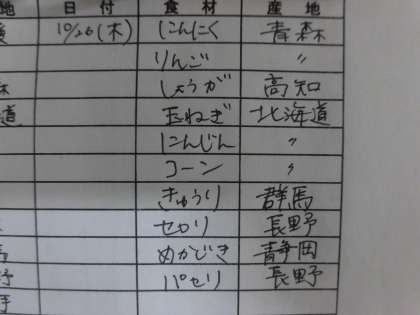 地 日付 食材 産地
10/26(木) にんにく 青森
りんご 〃
しょうが 高知
道 玉ねぎ 北海道
にんじん 〃
コーン 〃
きゅうり 群馬
セロリ 長野
馬 めかじき 静岡
野 パセリ 長野